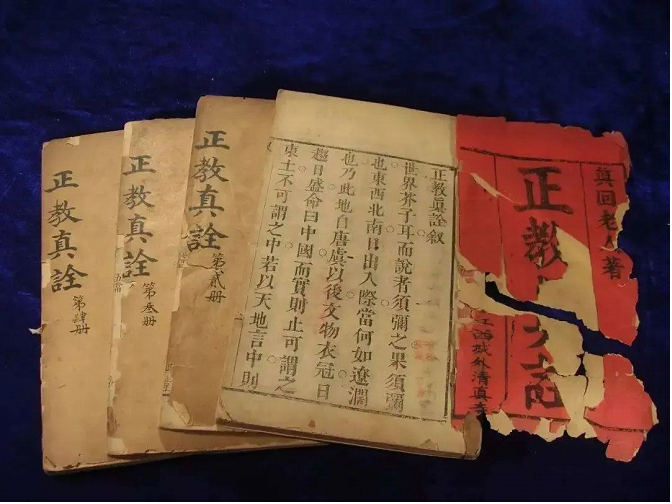 眞回老人著
正教
江西城外清真
正教眞詮叙
世界芥子耳而說者須彌之果須彌
也東西北南日出入際當何如遼濶
也乃此地自唐虞以後文物衣冠日
趨日盛命曰中國而實則止可謂之
東土不可謂之中若以天地言中則
正教真詮
第貳册
正教真詮
第叁册
正教真詮
第肆册